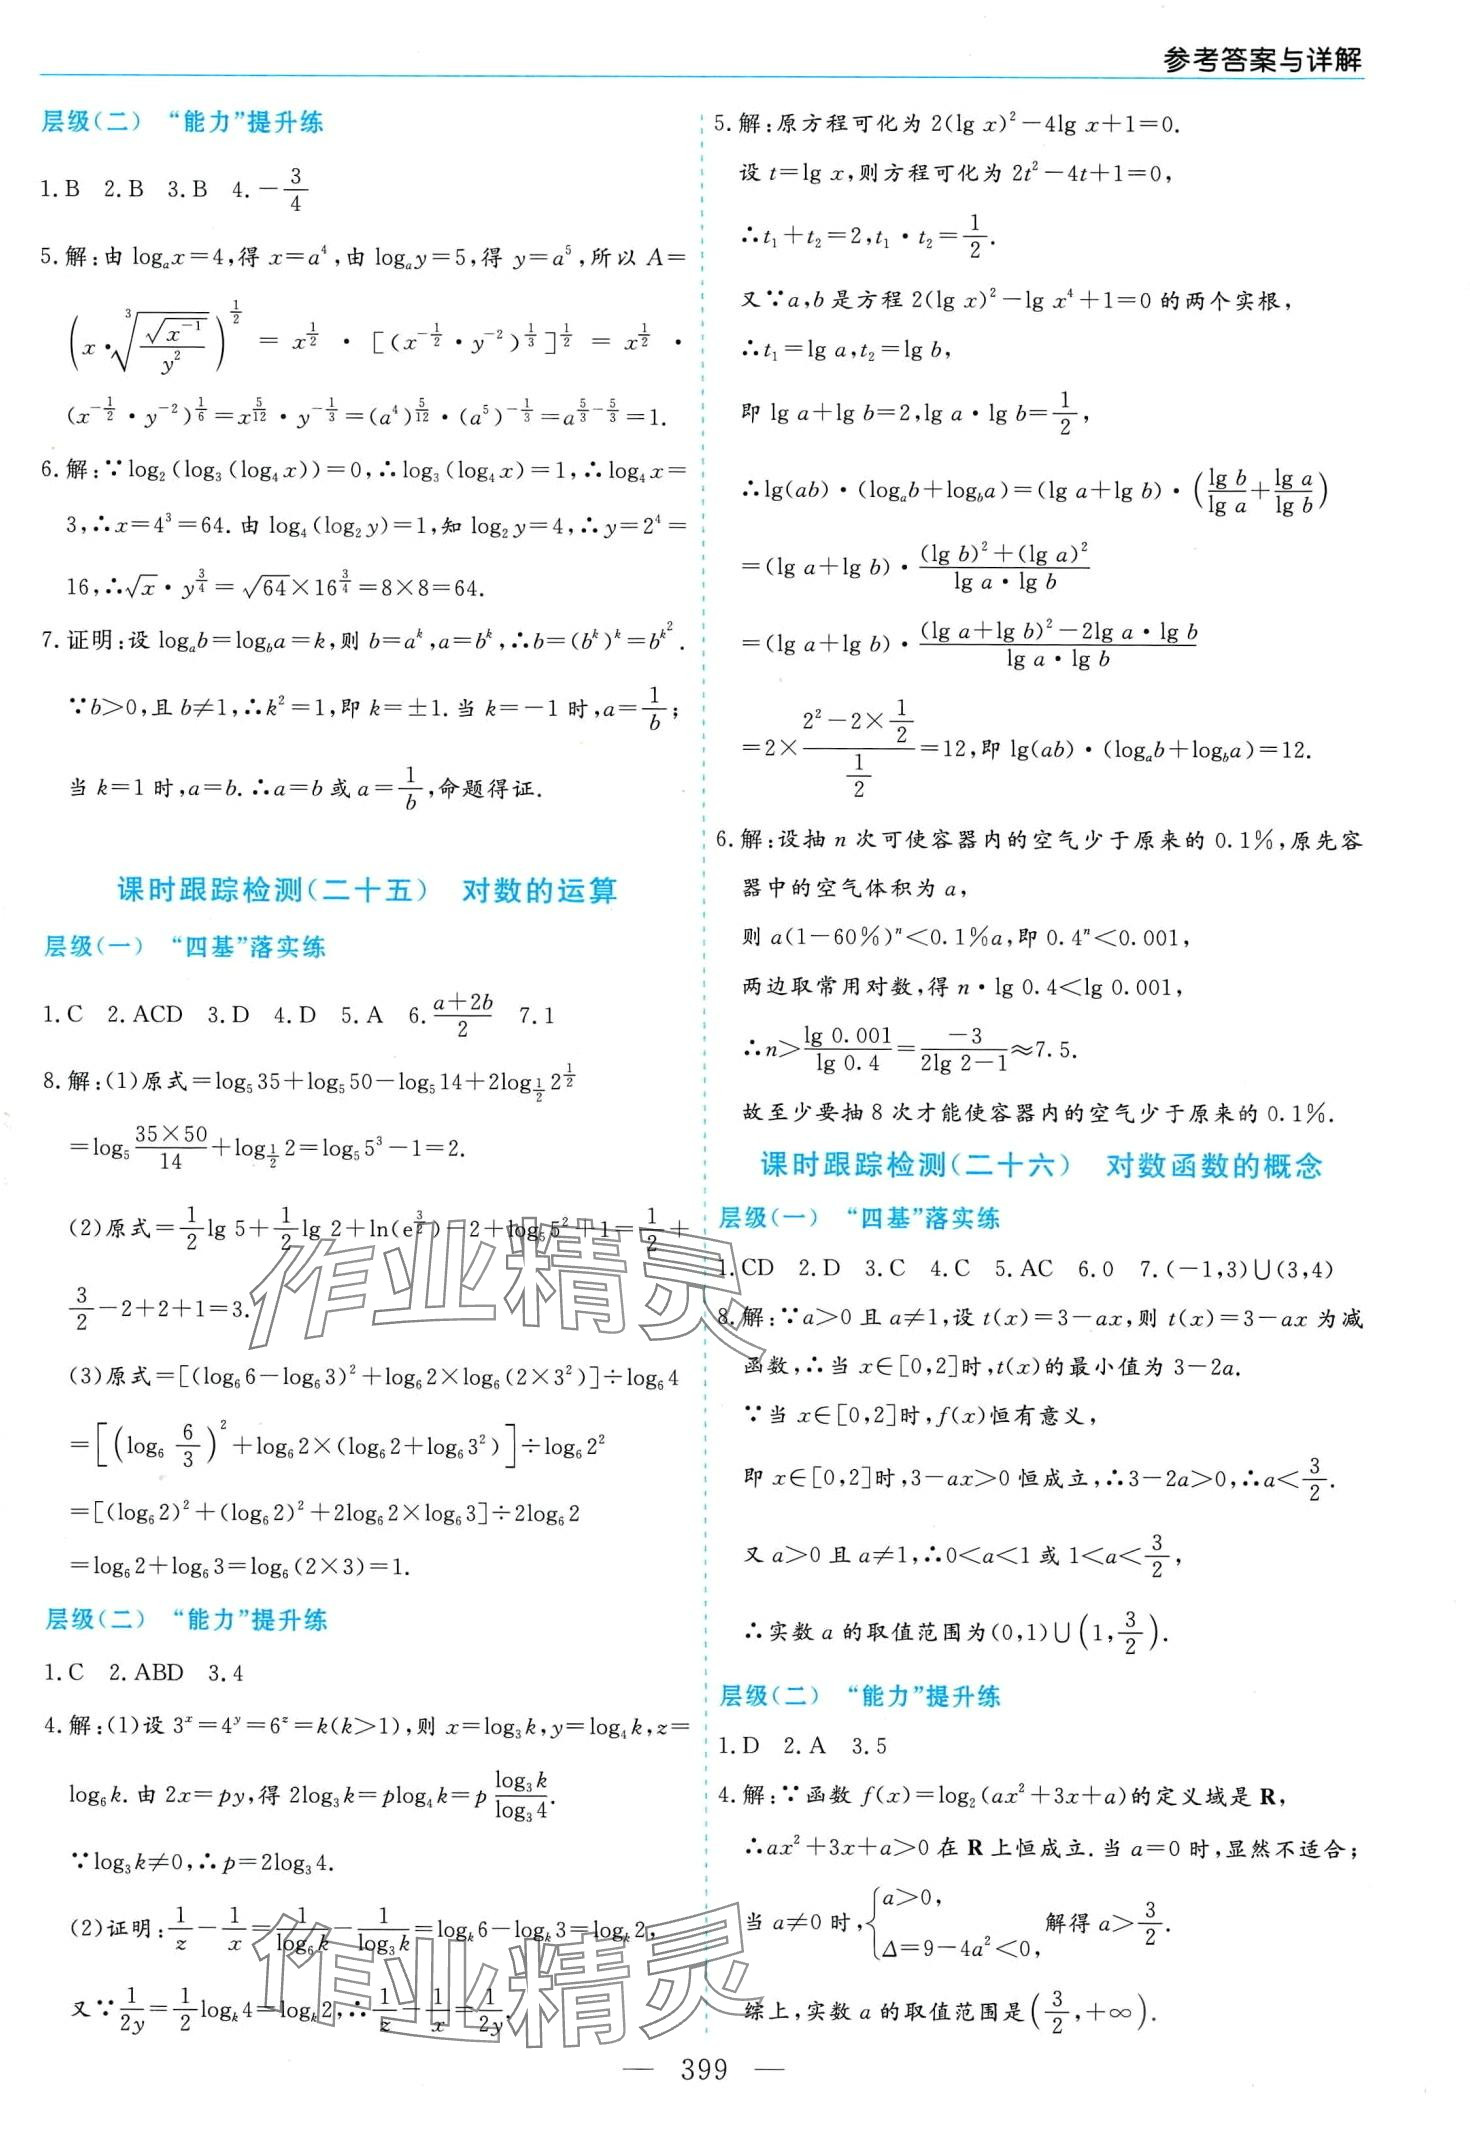 参考答案与详解
层级(二) “能力”提升练
1.B 2.B 3.B 4.-3/4
5.解:由 logₐx=4,得 x=a⁴,由 logₐy=5,得 y=a⁵,所以 A=
(x·∛(√(x⁻¹)/y²))^(1/2) = x^(1/2) · [(x^(-1/2)·y⁻²)^(1/3)]^(1/2) = x^(1/2) ·
(x^(-1/2)·y⁻²)^(1/6)=x^(5/12)·y^(-1/3)=(a⁴)^(5/12)·(a⁵)^(-1/3)=a^(5/3-5/3)=1.
6.解:∵log₂(log₃(log₄x))=0,∴log₃(log₄x)=1,∴log₄x=
3,∴x=4³=64.由 log₄(log₂y)=1,知 log₂y=4,∴y=2⁴=
16,∴√x·y^(3/4)=√64×16^(3/4)=8×8=64.
7.证明:设 logₐb=log_b a=k,则 b=a^k,a=b^k,∴b=(b^k)^k=b^(k²).
∵b>0,且 b≠1,∴k²=1,即 k=±1.当 k=-1 时,a=1/b;
当 k=1 时,a=b.∴a=b 或 a=1/b,命题得证.
课时跟踪检测(二十五) 对数的运算
层级(一) “四基”落实练
1.C 2.ACD 3.D 4.D 5.A 6.(a+2b)/2 7.1
8.解:(1)原式=log₅35+log₅50-log₅14+2log_(1/2)2^(1/2)
=log₅(35×50/14)+log_(1/2)2=log₅5³-1=2.
(2)原式=1/2lg 5+1/2lg 2+ln(e^(3/2))-2+log₅5²+1=1/2+
3/2-2+2+1=3.
(3)原式=[(log₆6-log₆3)²+log₆2×log₆(2×3²)]÷log₆4
=[(log₆ 6/3)²+log₆2×(log₆2+log₆3²)]÷log₆2²
=[(log₆2)²+(log₆2)²+2log₆2×log₆3]÷2log₆2
=log₆2+log₆3=log₆(2×3)=1.
层级(二) “能力”提升练
1.C 2.ABD 3.4
4.解:(1)设 3^x=4^y=6^z=k(k>1),则 x=log₃k,y=log₄k,z=
log₆k.由 2x=py,得 2log₃k=plog₄k=p log₃k/log₃4.
∵log₃k≠0,∴p=2log₃4.
(2)证明:1/z-1/x=1/log₆k-1/log₃k=log_k6-log_k3=log_k2,
又∵1/2y=1/2log_k4=log_k2,∴1/z-1/x=1/2y.
5.解:原方程可化为 2(lg x)²-4lg x+1=0.
设 t=lg x,则方程可化为 2t²-4t+1=0,
∴t₁+t₂=2,t₁·t₂=1/2.
又∵a,b 是方程 2(lg x)²-lg x⁴+1=0 的两个实根,
∴t₁=lg a,t₂=lg b,
即 lg a+lg b=2,lg a·lg b=1/2,
∴lg(ab)·(logₐb+log_b a)=(lg a+lg b)·(lg b/lg a+lg a/lg b)
=(lg a+lg b)·((lg b)²+(lg a)²)/(lg a·lg b)
=(lg a+lg b)·((lg a+lg b)²-2lg a·lg b)/(lg a·lg b)
=2×(2²-2×1/2)/(1/2)=12,即 lg(ab)·(logₐb+log_b a)=12.
6.解:设抽 n 次可使容器内的空气少于原来的 0.1%,原先容
器中的空气体积为 a,
则 a(1-60%)ⁿ<0.1%a,即 0.4ⁿ<0.001,
两边取常用对数,得 n·lg 0.4<lg 0.001,
∴n>lg 0.001/lg 0.4=-3/(2lg 2-1)≈7.5.
故至少要抽 8 次才能使容器内的空气少于原来的 0.1%.
课时跟踪检测(二十六) 对数函数的概念
层级(一) “四基”落实练
1.CD 2.D 3.C 4.C 5.AC 6.0 7.(-1,3)∪(3,4)
8.解:∵a>0 且 a≠1,设 t(x)=3-ax,则 t(x)=3-ax 为减
函数,∴当 x∈[0,2]时,t(x)的最小值为 3-2a.
∵当 x∈[0,2]时,f(x)恒有意义,
即 x∈[0,2]时,3-ax>0 恒成立,∴3-2a>0,∴a<3/2.
又 a>0 且 a≠1,∴0<a<1 或 1<a<3/2,
∴实数 a 的取值范围为(0,1)∪(1,3/2).
层级(二) “能力”提升练
1.D 2.A 3.5
4.解:∵函数 f(x)=log₂(ax²+3x+a)的定义域是 R,
∴ax²+3x+a>0 在 R 上恒成立.当 a=0 时,显然不适合;
当 a≠0 时,{a>0, Δ=9-4a²<0, 解得 a>3/2.
综上,实数 a 的取值范围是(3/2,+∞).
— 399 —
作业精灵
作业精灵